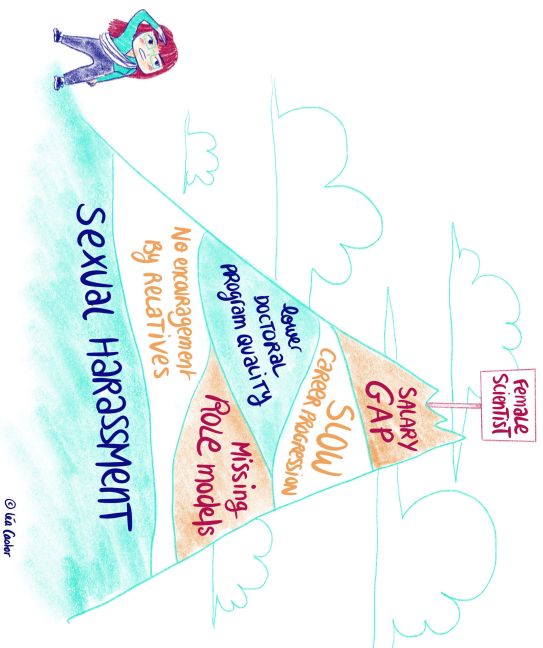 Female
Scientist
SALARY
GAP
SLOW
CAREER PROGRESSION
lower
DOCTORAL
PROGRAM QUALITY
Missing
ROLE models
No encouragement
By RELATIVES
SEXUAL HARASSMENT
© léa Castor